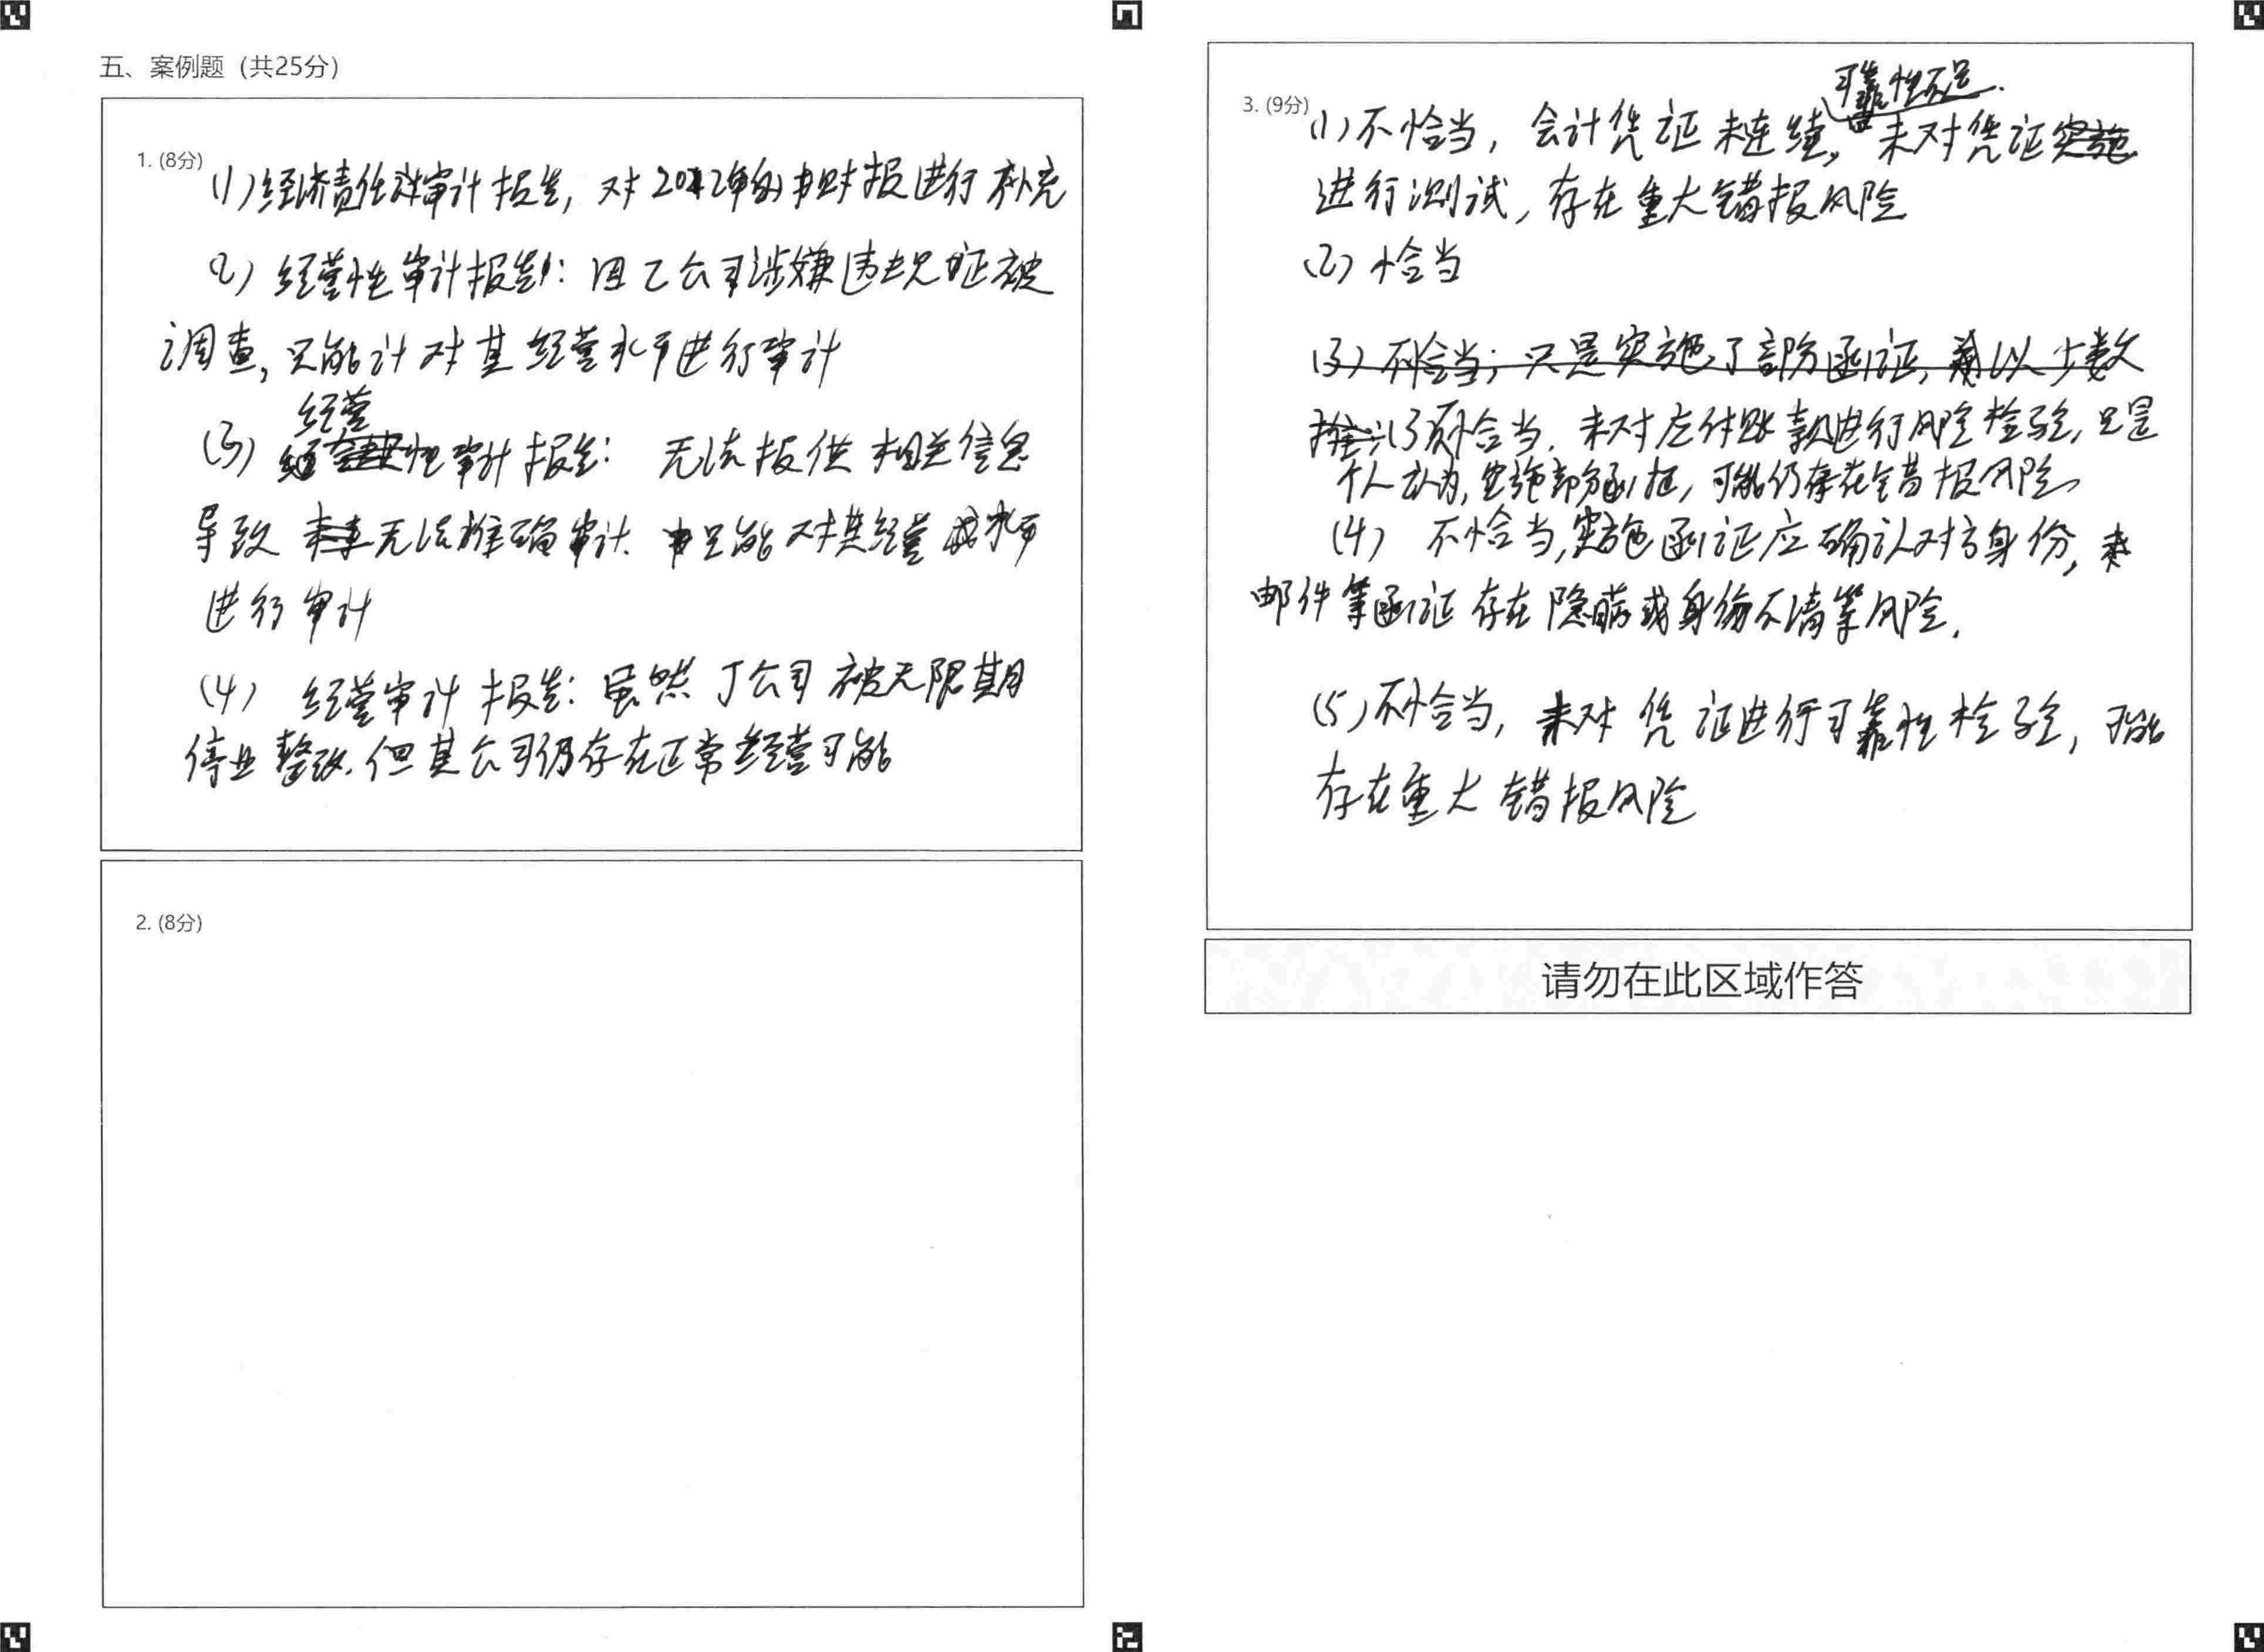 五、案例题（共25分）
1. (8分)
(1)经济责任审计报告，对2022年的财报进行补充
(2) 经营性审计报告：因乙公司涉嫌违规正被
调查，只能计对其经营水平进行审计
经营
(3) 性审计报告：无法提供相关信息
导致 无法准确审计. 只能对其经营水平
进行审计
(4) 经营审计报告：虽然丁公司被无限期
停业整改，但其公司仍存在正常经营可能
2. (8分)
3. (9分)
可靠性不足.
(1)不恰当，会计凭证未连续，未对凭证
进行测试，存在重大错报风险
(2) 恰当
(3) 不恰当；只是实施了部分函证，以少数
(3)不恰当. 未对应付账款进行风险检验，只是
个人认为，实施部分函证，可能仍存在错报风险。
(4) 不恰当，实施函证应确认对方身份，
邮件等函证存在隐瞒或身份不清等风险.
(5)不恰当，未对凭证进行可靠性检验，可能
存在重大错报风险
请勿在此区域作答